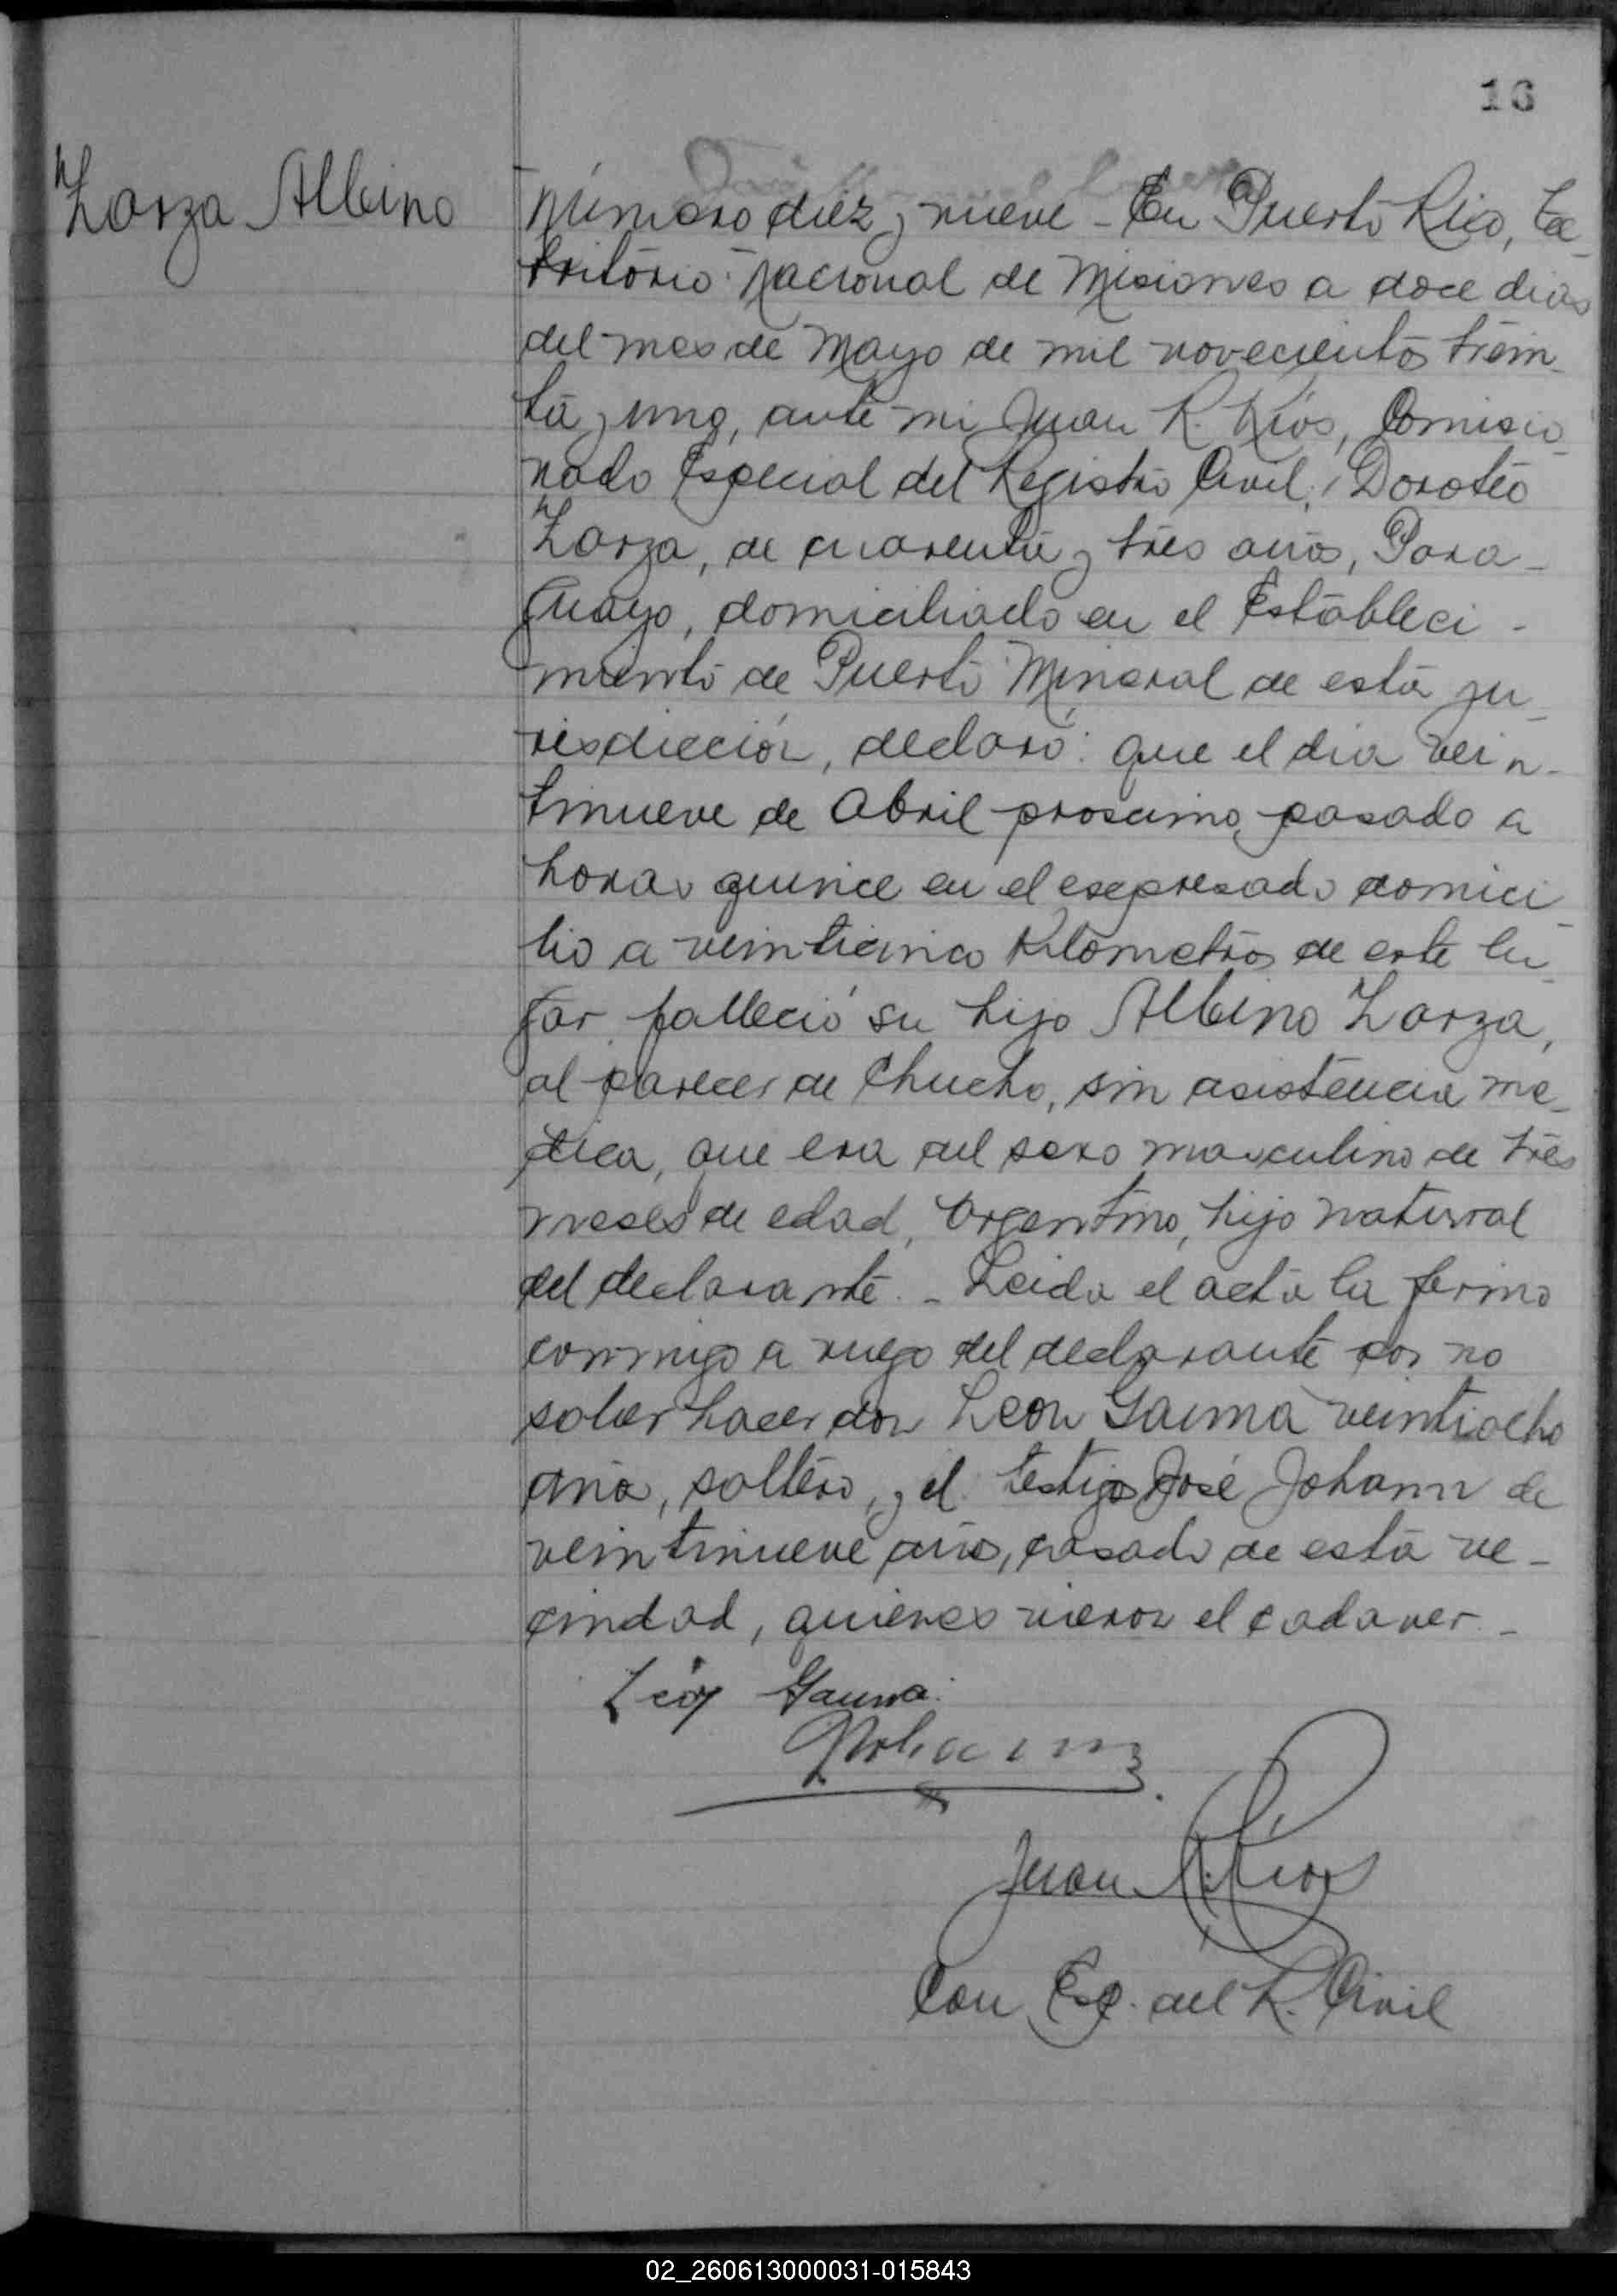 16
Zarza Albino
Número diez y nueve - En Puerto Rico, Te-
rritorio Nacional de Misiones a doce dias
del mes de Mayo de mil novecientos trein-
ta y uno, ante mi Juan R. Ríos, Comisio-
nado Especial del Registro Civil, Doroteo
Zarza, de cuarenta y tres años, Para-
guayo, domiciliado en el Estableci-
miento de Puerto Mineral de esta ju-
risdicción, declaró: que el dia vein-
tinueve de Abril prosimo pasado a
horas quince en el espresado domici-
lio a veinticinco Kilometros de este lu-
gar falleció su hijo Albino Zarza,
al parecer de Chucho, sin asistencia me-
dica, que era del sexo masculino de tres
meses de edad, Argentino, hijo natural
del declarante. - Leida el acta la firmo
conmigo a ruego del declarante por no
saber hacer don Leon Gauna veintiocho
años, soltero, y el testigo José Johann de
veintinueve años, casado de esta ve-
cindad, quienes vieron el cadaver. -
León Gauna.
Johann
Juan R. Ríos
Com Esp. del R. Civil
02_260613000031-015843